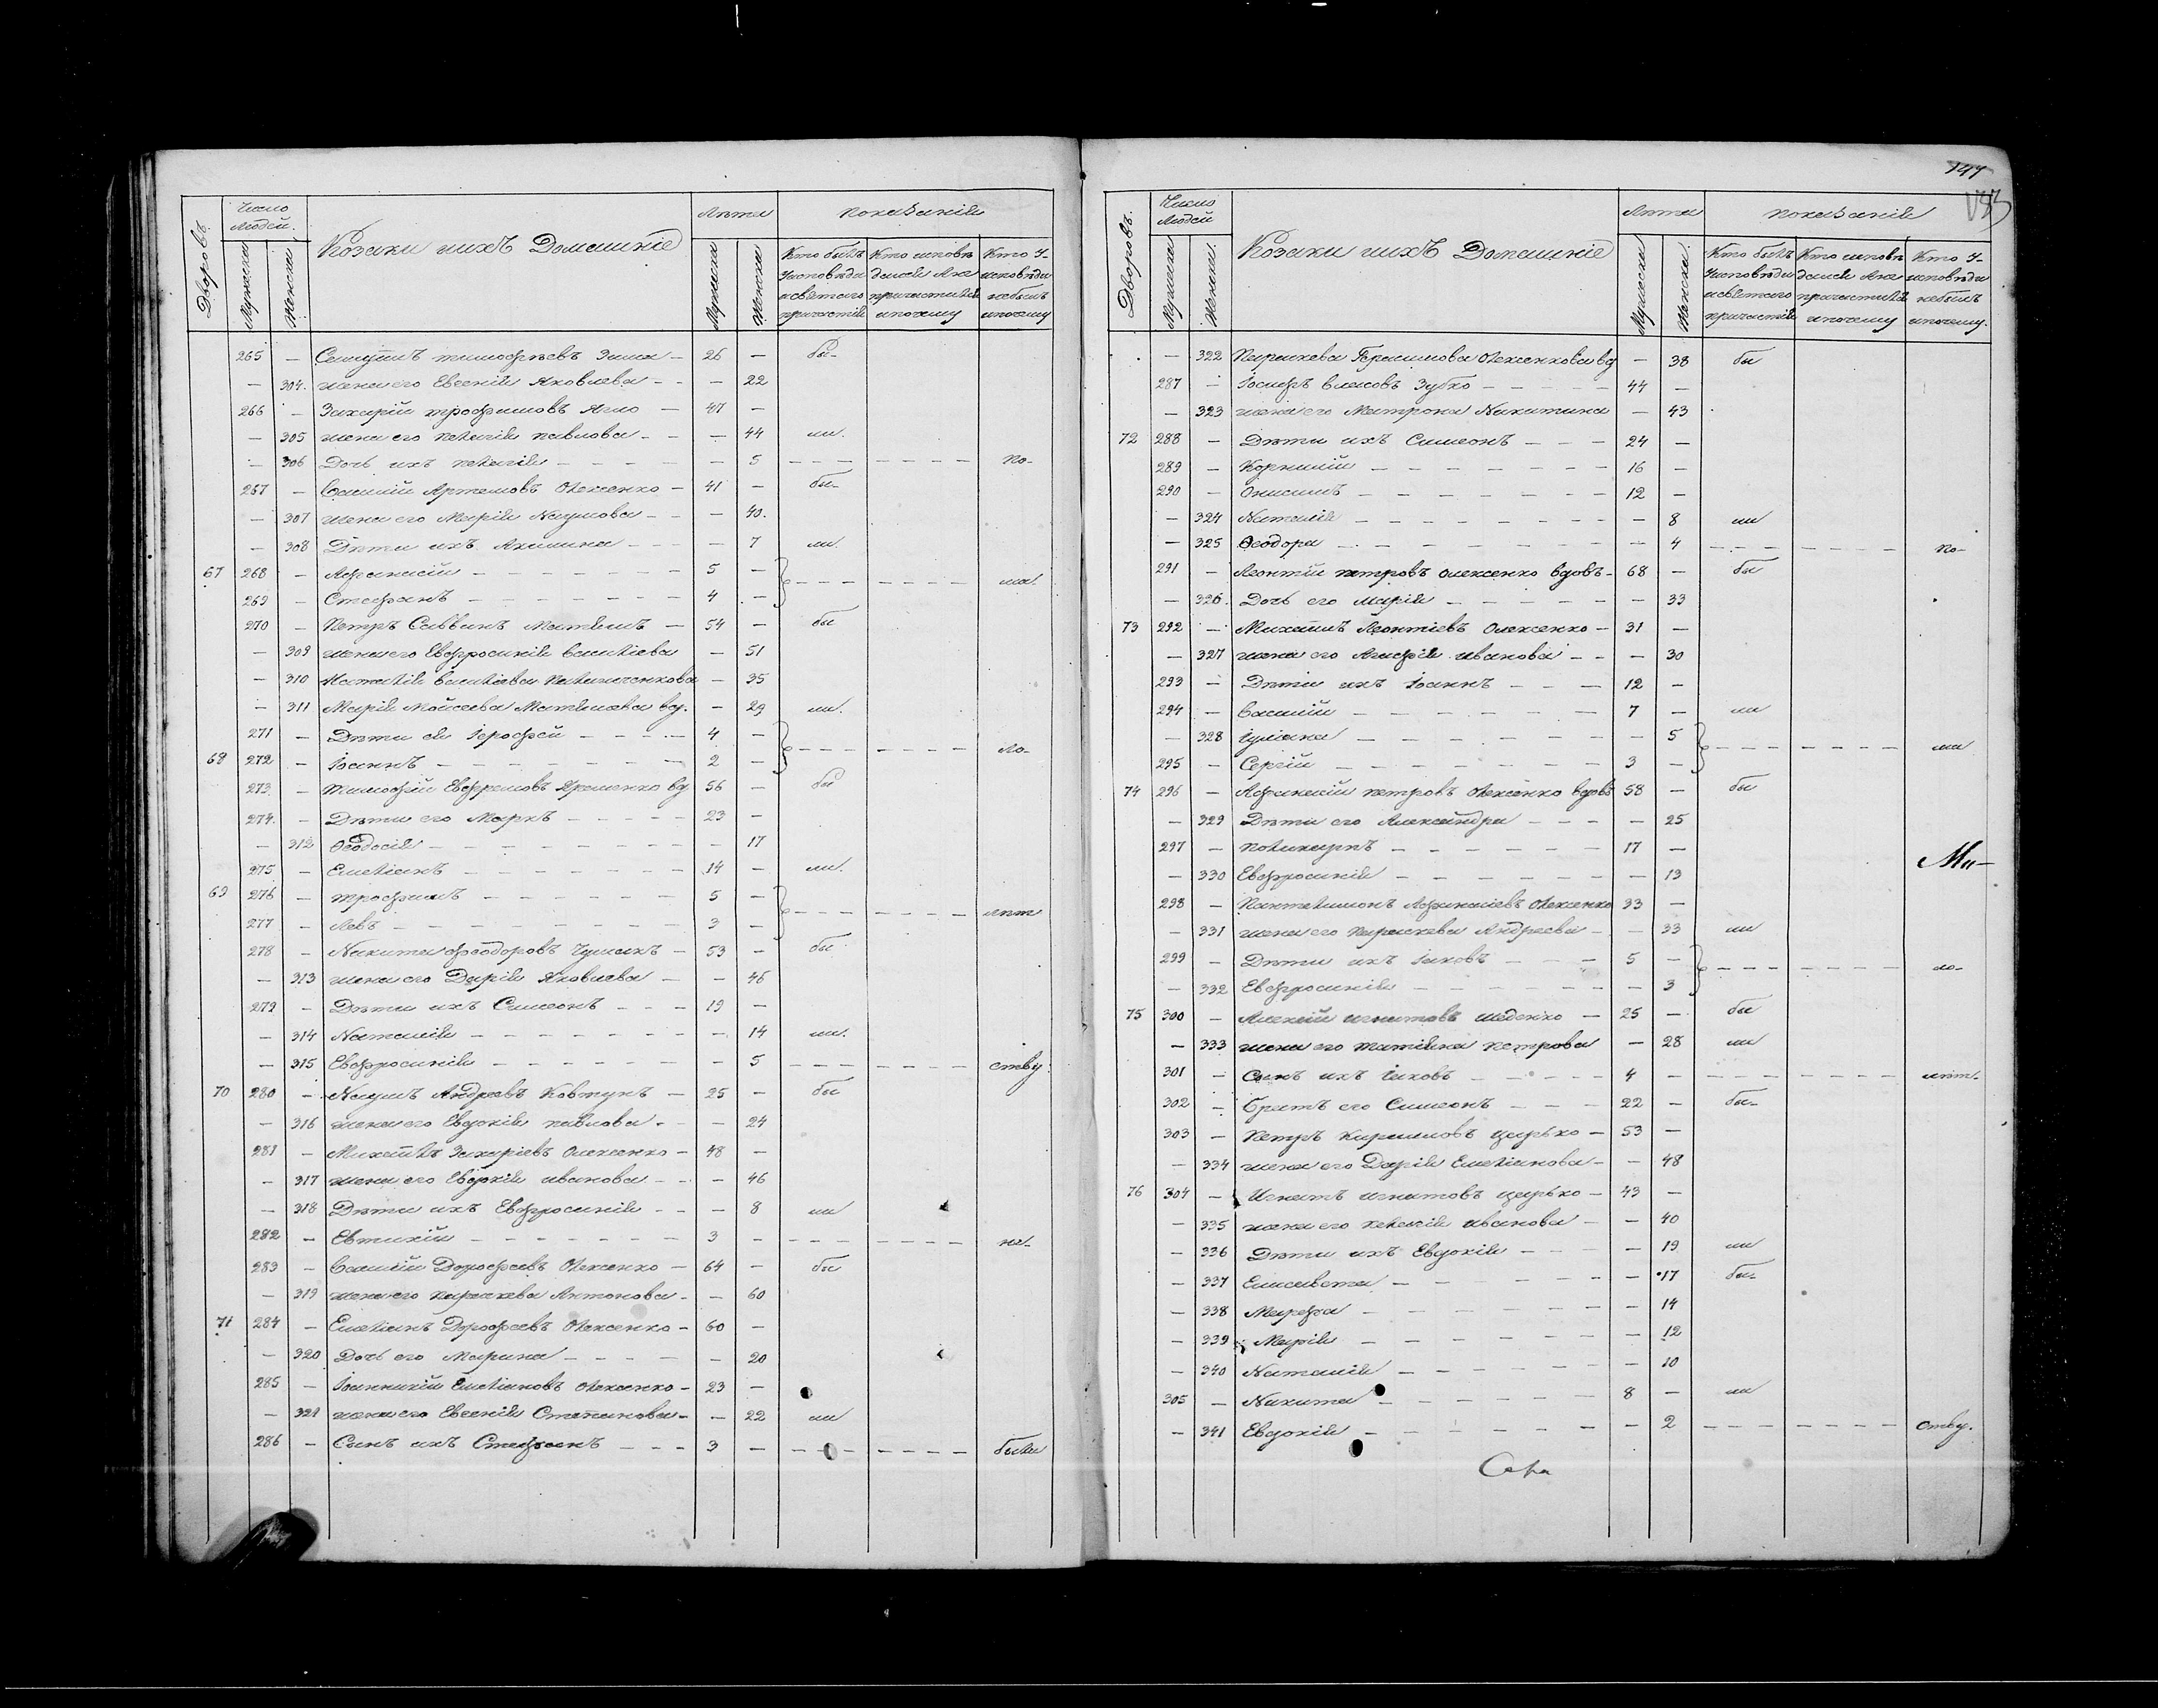 Дворовъ.
Число Людей.
Мужеска
Женска
Козаки и ихъ Домашніе
Лѣта
Мужеска
Женска
Показаніе
Кто былъ у исповѣди и святаго причастія
Кто исповѣдался а не причастился и почему
Кто у исповѣди не былъ и почему
265 — тимофѣевъ Зима — 26 — бы-
— 304. жена его Евгенія Яковлева — — 22
266 — Захарій трофимовъ — 47 —
— 305 жена его Пелагія павлова — — 44 ли.
— 306 Дочь ихъ Пелагія — — 5 — — — по-
267 — Василій Артемовъ Олексенко — 41 — бы-
— 307 жена его Марія Наумова — — 40.
— 308 Дѣти ихъ Акилина — — 7 ли.
67 268 — Афанасій — 5 —
269 — Стефанъ — 4 — — — ма-
270 — Петръ Саввинъ — 54 — бы
— 309 жена его Евфросинія василіева — 51
— 310 Наталія василіева — 35
— 311 Марія Мойсеева вд. — 29 ли.
271 — Дѣти ея Ерофей — 4 —
68 272 — Іоаннъ — 2 — — — ло-
273 — Тимофій Евфремовъ Яременко вд 56 — бы
274. — Дѣти его Маркъ — 23 —
— 312 Ѳеодосія — — 17
275 — Емеліанъ — 14 — ли.
69 276 — трофимъ — 5 —
277 — Левъ — 3 — — — лѣт
278 — Никита феодоровъ Чумакъ — 53 — бы
— 313 жена его Дарія Яковлева — — 46
279 — Дѣти ихъ Симеонъ — 19 —
— 314 Наталія — — 14 ли.
— 315 Евфросинія — — 5 — — — ству
70 280 — Наумъ Андреевъ Ковтунъ — 25 — бы
— 316 жена его Евдокія павлова — — 24
281 — Михаилъ Захаріевъ Олексенко — 48 —
— 317 жена его Евдокія иванова — — 46
— 318 Дѣти ихъ Евфросинія — — 8 ли
282 — Евтихій — 3 — — — не-
283 — Василій Дорофеевъ Олексенко — 64 — бы
— 319 жена его параскева Антонова — — 60
71 284 — Емеліанъ Дорофеевъ Олексенко — 60 —
— 320 Дочь его Марина — — 20
285 — Іоанникій Емеліановъ Олексенко — 23 —
— 321 жена его Евгенія Степанова — — 22 ли
286 — Сынъ ихъ Стефанъ — 3 — — — были
147
Дворовъ.
Число Людей
Мужеска
Женска.
Козаки и ихъ Домашніе
Лѣта
Мужеска
Женска.
Показаніе
Кто былъ у исповѣди и святаго причастія
Кто исповѣдался а не причастился и почему
Кто у исповѣди не былъ и почему.
— 322 Параскева Герасимова Олексенкова вд — 38 бы
287 — Іосифъ власовъ Зубко — 44 —
— 323 жена его Матрона Никитина — 43
72 288 — Дѣти ихъ Симеонъ — 24 —
289 — Корнилій — 16 —
290 — Онисимъ — 12 —
— 324 Наталія — — 8 ли
— 325 Ѳеодора — — 4 — — — по-
291 — Леонтій петровъ олексенко вдовъ — 68 — бы
— 326. Дочь его Марія — — 33
73 292 — Михаилъ Леонтіевъ Олексенко — 31 —
— 327 жена его Агафія иванова — — 30
293 — Дѣти ихъ Іоаннъ — 12 —
294 — Василій — 7 — ли
— 328 Іуліана — — 5
295 — Сергій — 3 — — — ма
74 296 — Афанасій петровъ Олексенко вдовъ 58 — бы
— 329 Дѣти его Александра — — 25
297 — Поликарпъ — 17 —
Ма—
— 330 Евфросинія — — 13
298 — Пантелимонъ Афанасіевъ Олексенко 33 —
— 331 жена его Параскева Андреева — — 33 ли
299 — Дѣти ихъ Іаковъ — 5 —
— 332 Евфросинія — — 3 — — — ло-
75 300 — Алексій игнатовъ Шеденко — 25 — бы
— 333 жена его татіяна Петрова — 28 ли
301 — Сынъ ихъ Іаковъ — 4 — — — лѣт-
302 — Братъ его Симеонъ — 22 — бы-
303 — Петръ Кириловъ цирько — 53 —
— 334 жена его Дарія Емеліанова — — 48
76 304 — Игнатъ игнатовъ цирько — 43 —
— 335 жена его пелагія иванова — — 40
— 336 Дѣти ихъ Евдокія — — 19 ли
— 337 Елисавета — — 17 бы-
— 338 Марфа — — 14
— 339 Марія — — 12
— 340 Наталія — — 10
305 — Никита — 8 — ли
— 341 Евдокія — — 2 — — — ству.